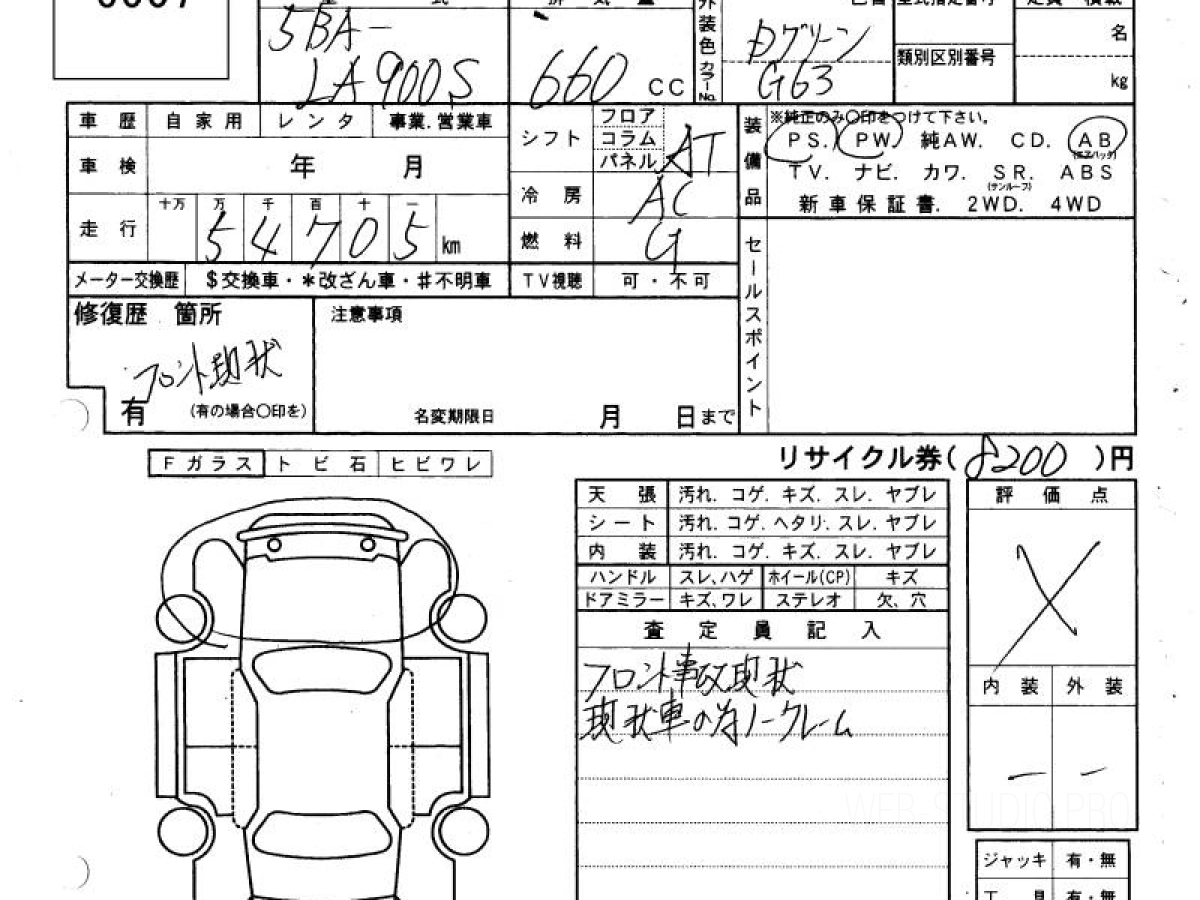 5BA-
LA900S
660 cc
外装色 カラーNo.
白グリーン
G63
類別区別番号
名
kg
車歴 自家用 レンタ 事業.営業車
車検 年 月
走行 十万 万 千 百 十 一
54705 km
メーター交換歴 $交換車・*改ざん車・#不明車
シフト フロア コラム パネル AT
冷房 AC
燃料 G
TV視聴 可・不可
装備品
※純正のみ〇印をつけて下さい。
PS. PW. 純AW. CD. AB
(エアバック)
TV. ナビ. カワ. SR. ABS
(サンルーフ)
新車保証書. 2WD. 4WD
セールスポイント
修復歴 箇所
フロント現状
有 (有の場合〇印を)
注意事項
名変期限日 月 日まで
リサイクル券(8200)円
Fガラス トビ石 ヒビワレ
天張 汚れ. コゲ. キズ. スレ. ヤブレ
シート 汚れ. コゲ. ヘタリ. スレ. ヤブレ
内装 汚れ. コゲ. キズ. スレ. ヤブレ
ハンドル スレ、ハゲ ホイール(CP) キズ
ドアミラー キズ、ワレ ステレオ 欠、穴
査定員記入
フロント事故現状
現状車の為ノークレーム
評価点
X
内装 外装
- -
ジャッキ 有・無
工具 有・無
WEB STUDIO PRO